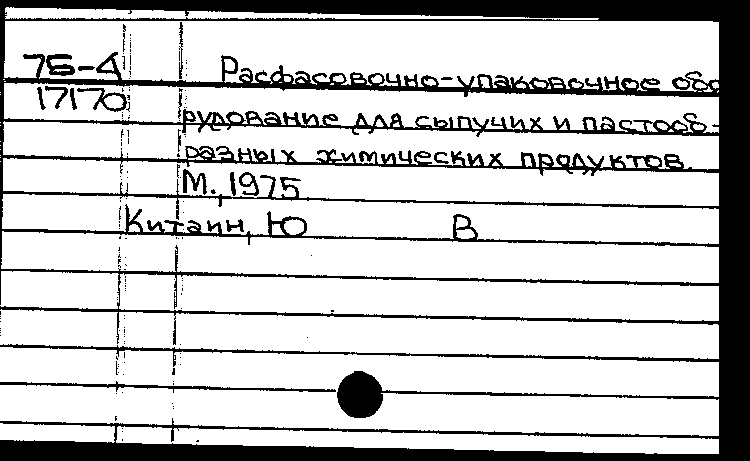 75-4 Расфасовочно-упаковочное обо
17170
рудование для сыпучих и пастооб-
разных химических продуктов.
М., 1975
Китаин, Ю В